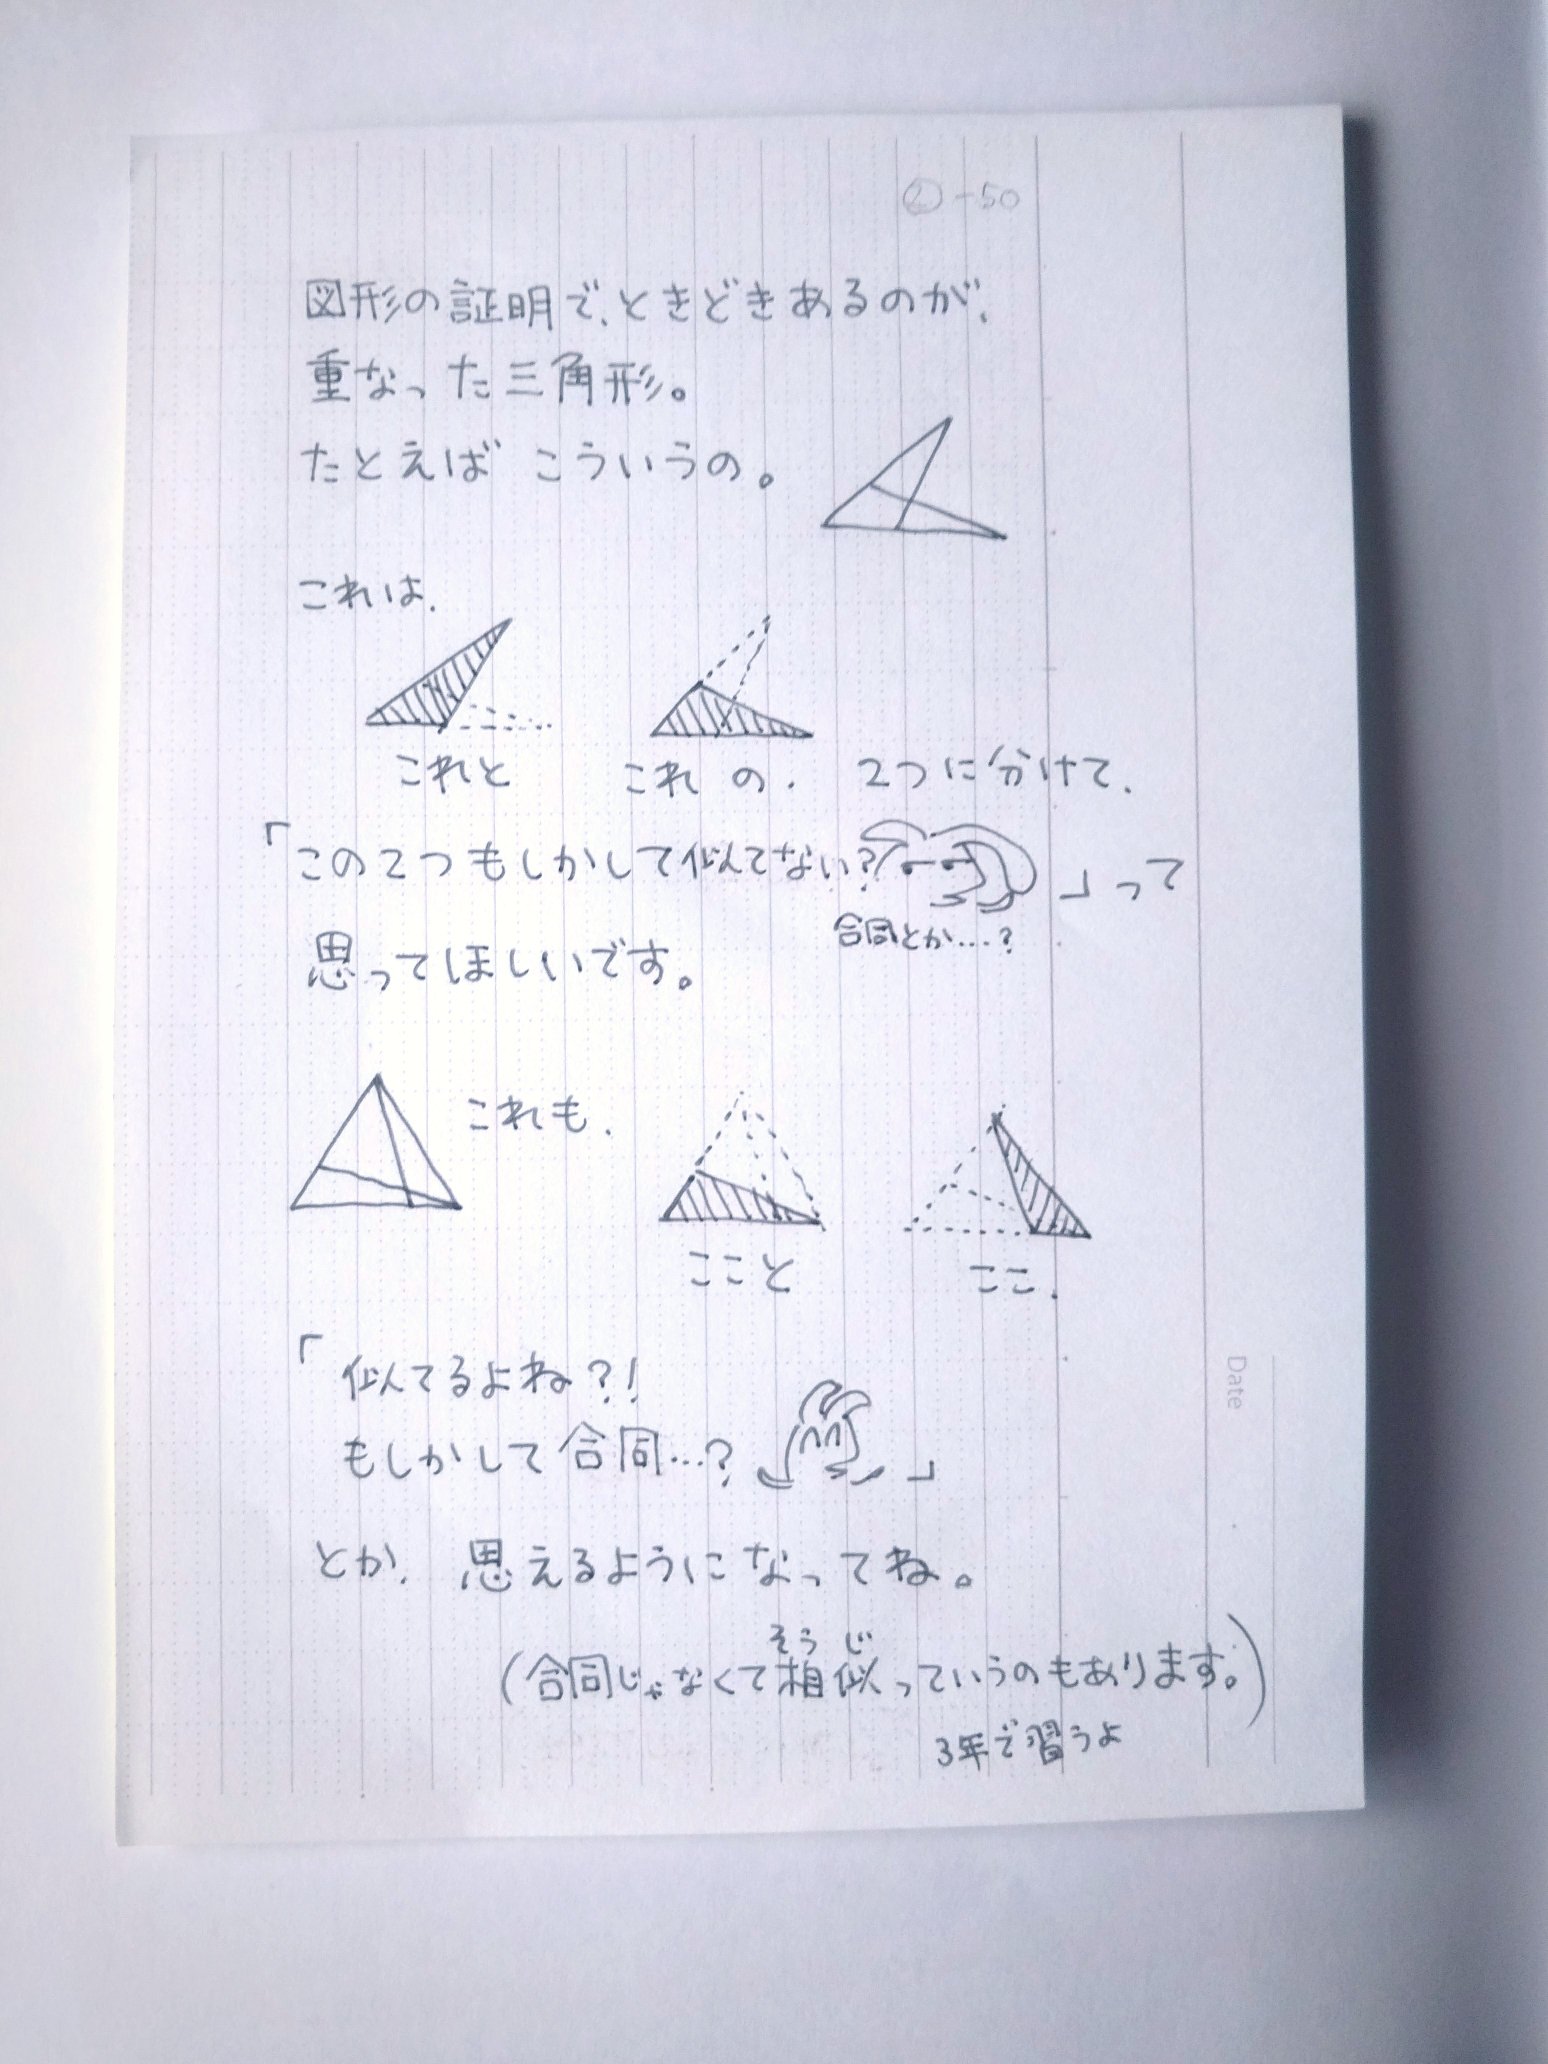 ②-50
図形の証明で、ときどきあるのが、
重なった三角形。
たとえば こういうの。
これは、
これと これ の、 2つに分けて、
「この2つもしかして似てない? 」って
合同とか…?
思ってほしいです。
これも、
ここと ここ、
「似てるよね?!
もしかして合同…? 」
とか、 思えるようになってね。
そうじ
(合同じゃなくて相似っていうのもあります。)
3年で習うよ
Date